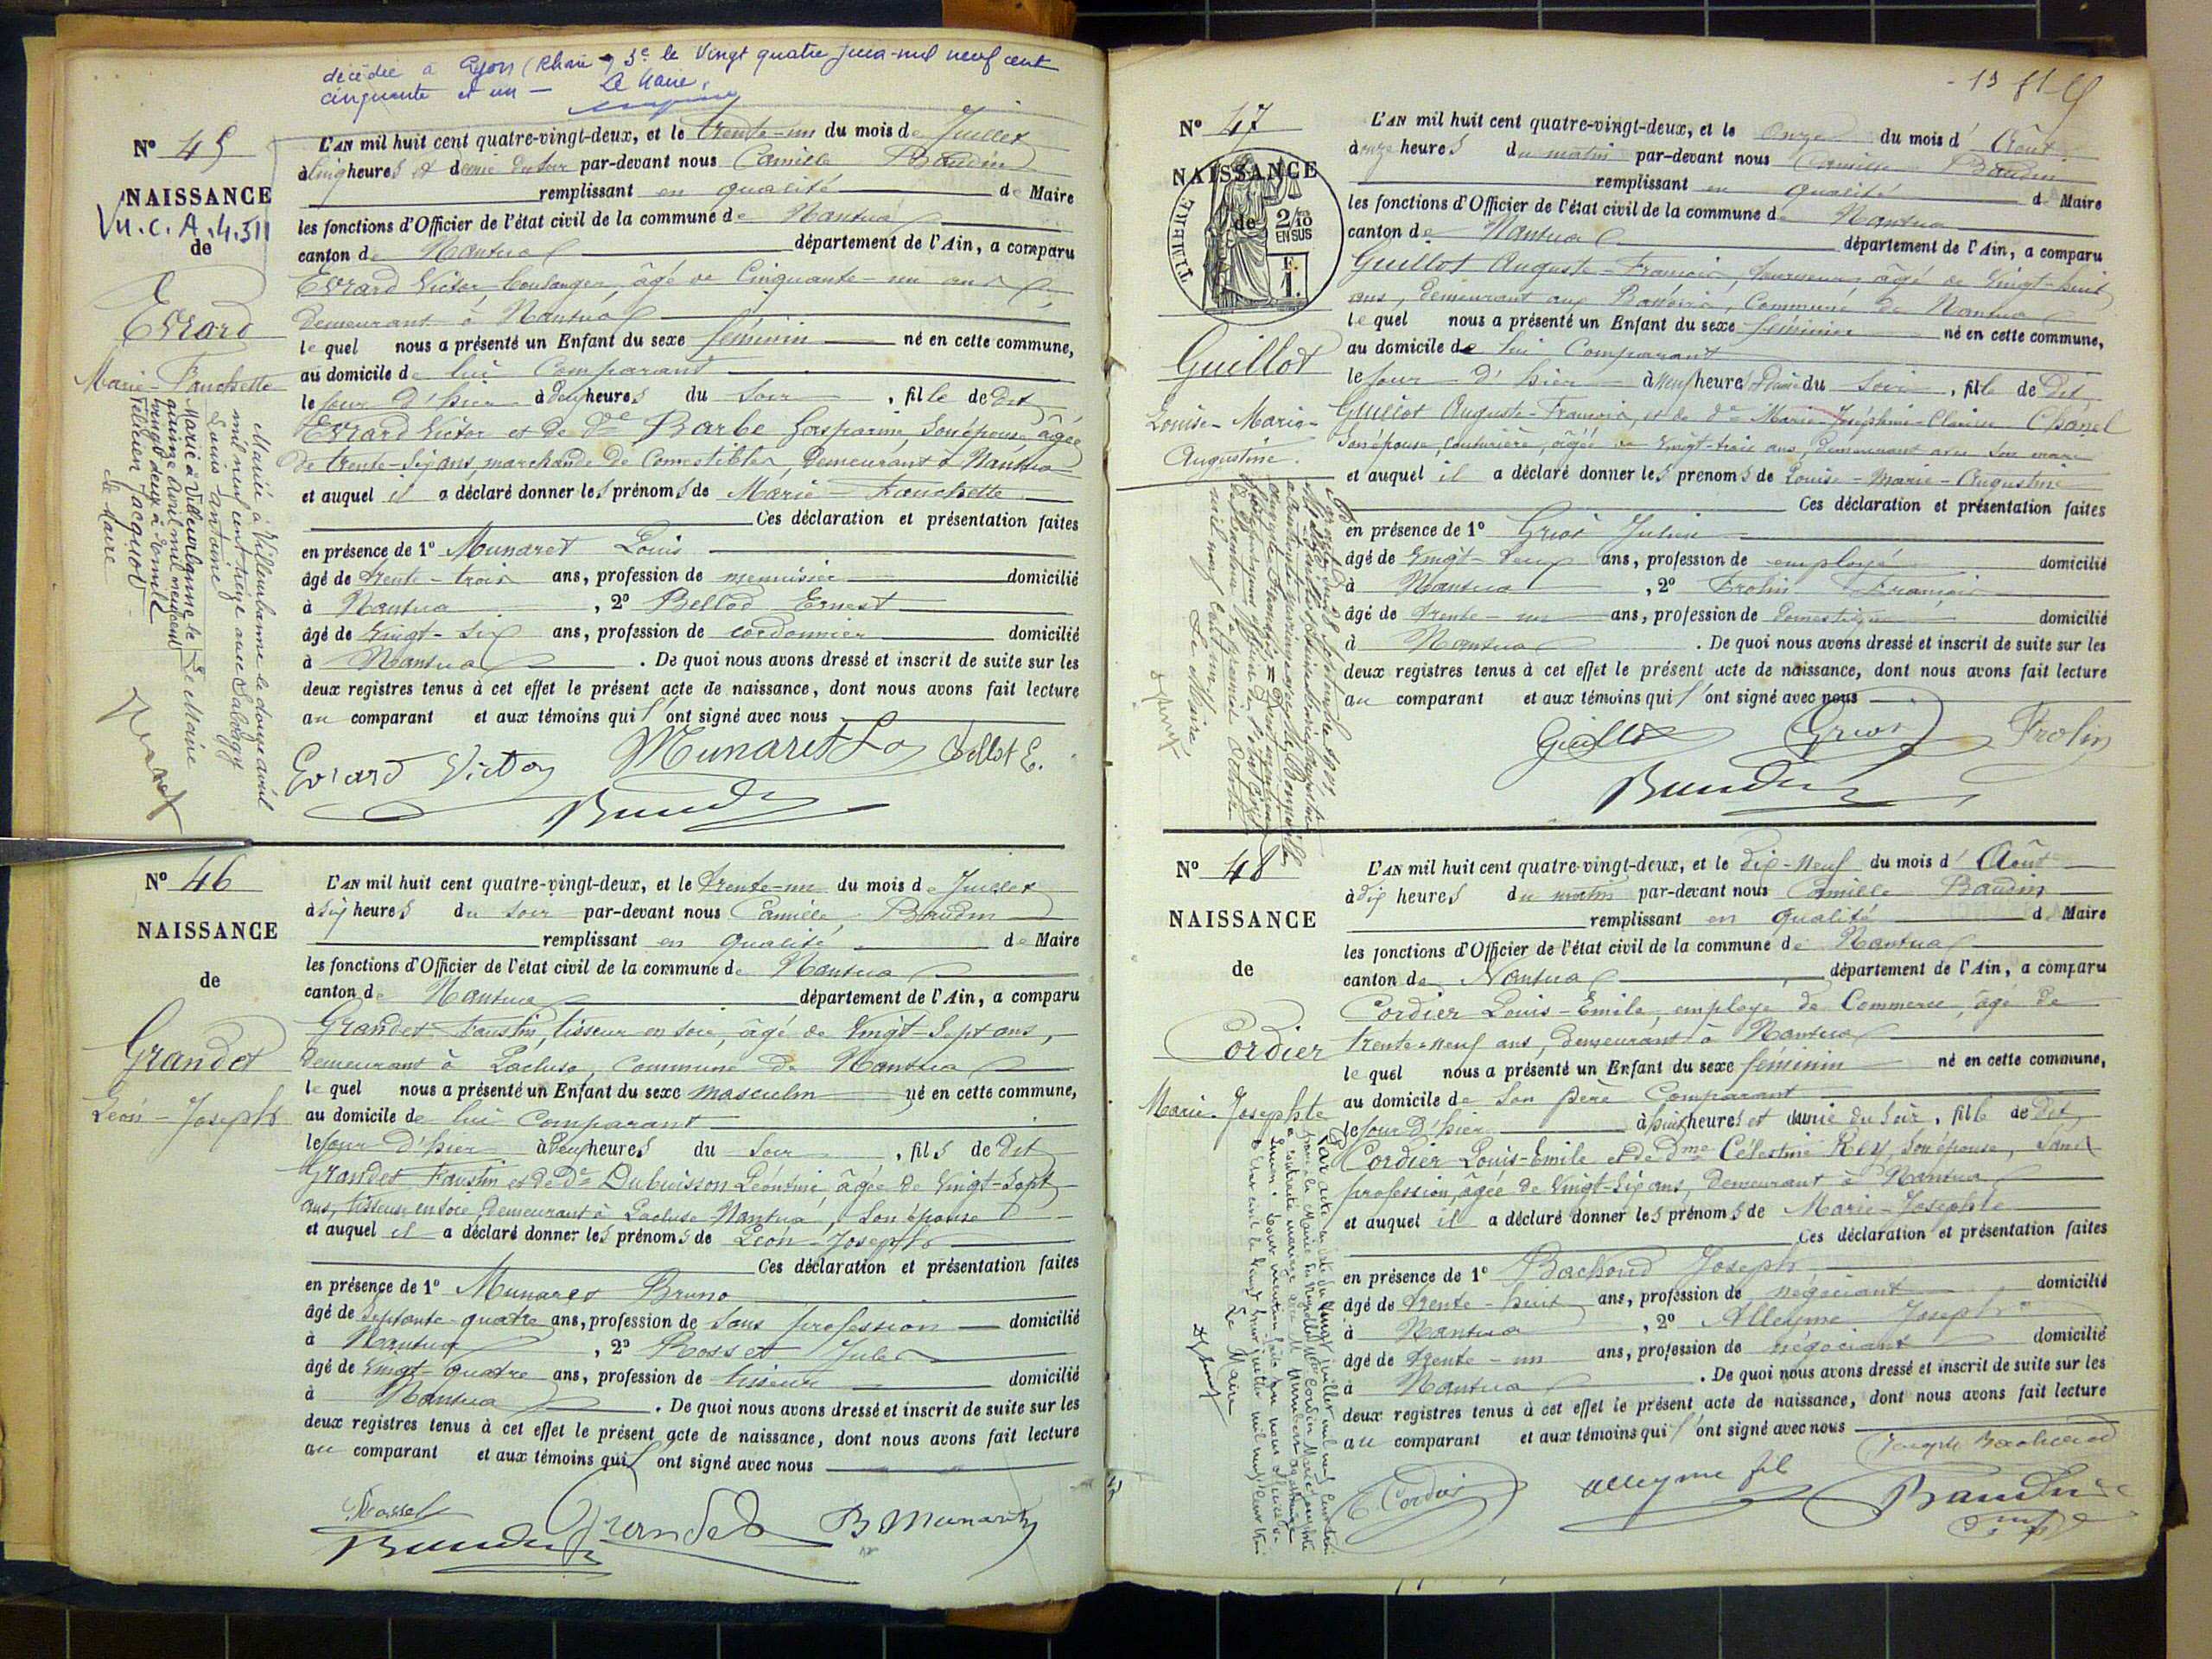 décédée à Lyon (Rhône) 3e le vingt quatre juin mil neuf cent
cinquante et un — Le Maire,
N° 45
NAISSANCE
Vu. C. A. 4.511
de
Evrard
Marie-Fanchette
Mariée à Villeurbanne le douze avril
mil neuf cent treize avec Salvaggy
Louis-Antoine
Le Maire
Marié à Villeurbanne le
quinze avril mil neuf cent
vingt deux à domile
Félicien Jacquot
Le Maire
L'AN mil huit cent quatre-vingt-deux, et le trente-un du mois de Juillet
à cinq heures et demie du soir par-devant nous Camille Baudin
remplissant en qualité de Maire
les fonctions d'Officier de l'état civil de la commune de Nantua
canton de Nantua département de l'Ain, a comparu
Evrard Victor boulanger, âgé de Cinquante-un ans
demeurant à Nantua
lequel nous a présenté un Enfant du sexe féminin né en cette commune,
au domicile de lui Comparant
le jour d'hier à deux heures du soir, fille de dit
Evrard Victor et de De Barbe Gasparine, son épouse, âgée
de trente-six ans, marchande de Comestibles, demeurant à Nantua
et auquel il a déclaré donner les prénoms de Marie-Fanchette
Ces déclaration et présentation faites
en présence de 1° Munaret Louis
âgé de trente-trois ans, profession de menuisier domicilié
à Nantua, 2° Bellod Ernest
âgé de vingt-six ans, profession de cordonnier domicilié
à Nantua. De quoi nous avons dressé et inscrit de suite sur les
deux registres tenus à cet effet le présent acte de naissance, dont nous avons fait lecture
au comparant et aux témoins qui l'ont signé avec nous
Evrard Victor Munaret Ls Bellod E.
Baudin
N° 46
NAISSANCE
de
Grandet
Léon-Joseph
L'AN mil huit cent quatre-vingt-deux, et le trente-un du mois de Juillet
à six heures du soir par-devant nous Camille Baudin
remplissant en qualité de Maire
les fonctions d'Officier de l'état civil de la commune de Nantua
canton de Nantua département de l'Ain, a comparu
Grandet Faustin, tisseur en soie, âgé de vingt-sept ans,
demeurant à Lacluse, Commune de Nantua
lequel nous a présenté un Enfant du sexe masculin né en cette commune,
au domicile de lui Comparant
le jour d'hier à deux heures du soir, fils de dit
Grandet Faustin et de De Dubuisson Léontine, âgée de vingt-sept
ans, tisseuse en soie, demeurant à Lacluse Nantua, son épouse
et auquel il a déclaré donner les prénoms de Léon-Joseph
Ces déclaration et présentation faites
en présence de 1° Munaret Bruno
âgé de septante-quatre ans, profession de sans profession domicilié
à Nantua, 2° Rosset Jules
âgé de vingt-quatre ans, profession de tisseur domicilié
à Nantua. De quoi nous avons dressé et inscrit de suite sur les
deux registres tenus à cet effet le présent acte de naissance, dont nous avons fait lecture
au comparant et aux témoins qui l'ont signé avec nous
Rosset Grandet B Munaret
Baudin
N° 47
NAISSANCE
de
TIMBRE
2/10 EN SUS
F. 1.
Guillot
Louise-Marie-
Augustine
Le Maire
L'AN mil huit cent quatre-vingt-deux, et le onze du mois d'Août
à onze heures du matin par-devant nous Camille Baudin
remplissant en qualité de Maire
les fonctions d'Officier de l'état civil de la commune de Nantua
canton de Nantua département de l'Ain, a comparu
Guillot Auguste-François, tourneur, âgé de vingt-huit
ans, demeurant aux Battoirs, Commune de Nantua
lequel nous a présenté un Enfant du sexe féminin né en cette commune,
au domicile de lui Comparant
le jour d'hier à neuf heures Demie du soir, fille de Dit
Guillot Auguste-François, et de De Marie-Joséphine-Clarisse Chanel
son épouse, couturière, âgée de vingt-trois ans, demeurant avec son mari
et auquel il a déclaré donner les prénoms de Louise-Marie-Augustine
Ces déclaration et présentation faites
en présence de 1° Grios Julien
âgé de vingt-deux ans, profession de employé domicilié
à Nantua, 2° Frolin François
âgé de trente-un ans, profession de domestique domicilié
à Nantua. De quoi nous avons dressé et inscrit de suite sur les
deux registres tenus à cet effet le présent acte de naissance, dont nous avons fait lecture
au comparant et aux témoins qui l'ont signé avec nous
Guillot Grios Frolin
Baudin
N° 48
NAISSANCE
de
Cordier
Marie-Josephte
Par acte en date du vingt juillet mil neuf cent trois
Le Maire
L'AN mil huit cent quatre-vingt-deux, et le dix-neuf du mois d'Août
à dix heures du matin par-devant nous Camille Baudin
remplissant en qualité de Maire
les fonctions d'Officier de l'état civil de la commune de Nantua
canton de Nantua département de l'Ain, a comparu
Cordier Louis-Emile, employé de Commerce, âgé de
trente-neuf ans, demeurant à Nantua
lequel nous a présenté un Enfant du sexe féminin né en cette commune,
au domicile de son père Comparant
le jour d'hier à huit heures et demie du soir, fille de Dit
Cordier Louis-Emile et de Dme Célestine Rey, son épouse, sans
profession, âgée de vingt-six ans, demeurant à Nantua
et auquel il a déclaré donner les prénoms de Marie-Josephte
Ces déclaration et présentation faites
en présence de 1° Bachoud Joseph
âgé de trente-huit ans, profession de négociant domicilié
à Nantua, 2° Alleyme Joseph
âgé de trente-un ans, profession de négociant domicilié
à Nantua. De quoi nous avons dressé et inscrit de suite sur les
deux registres tenus à cet effet le présent acte de naissance, dont nous avons fait lecture
au comparant et aux témoins qui l'ont signé avec nous
Joseph Bachoud
E. Cordier alleyme fil Baudin